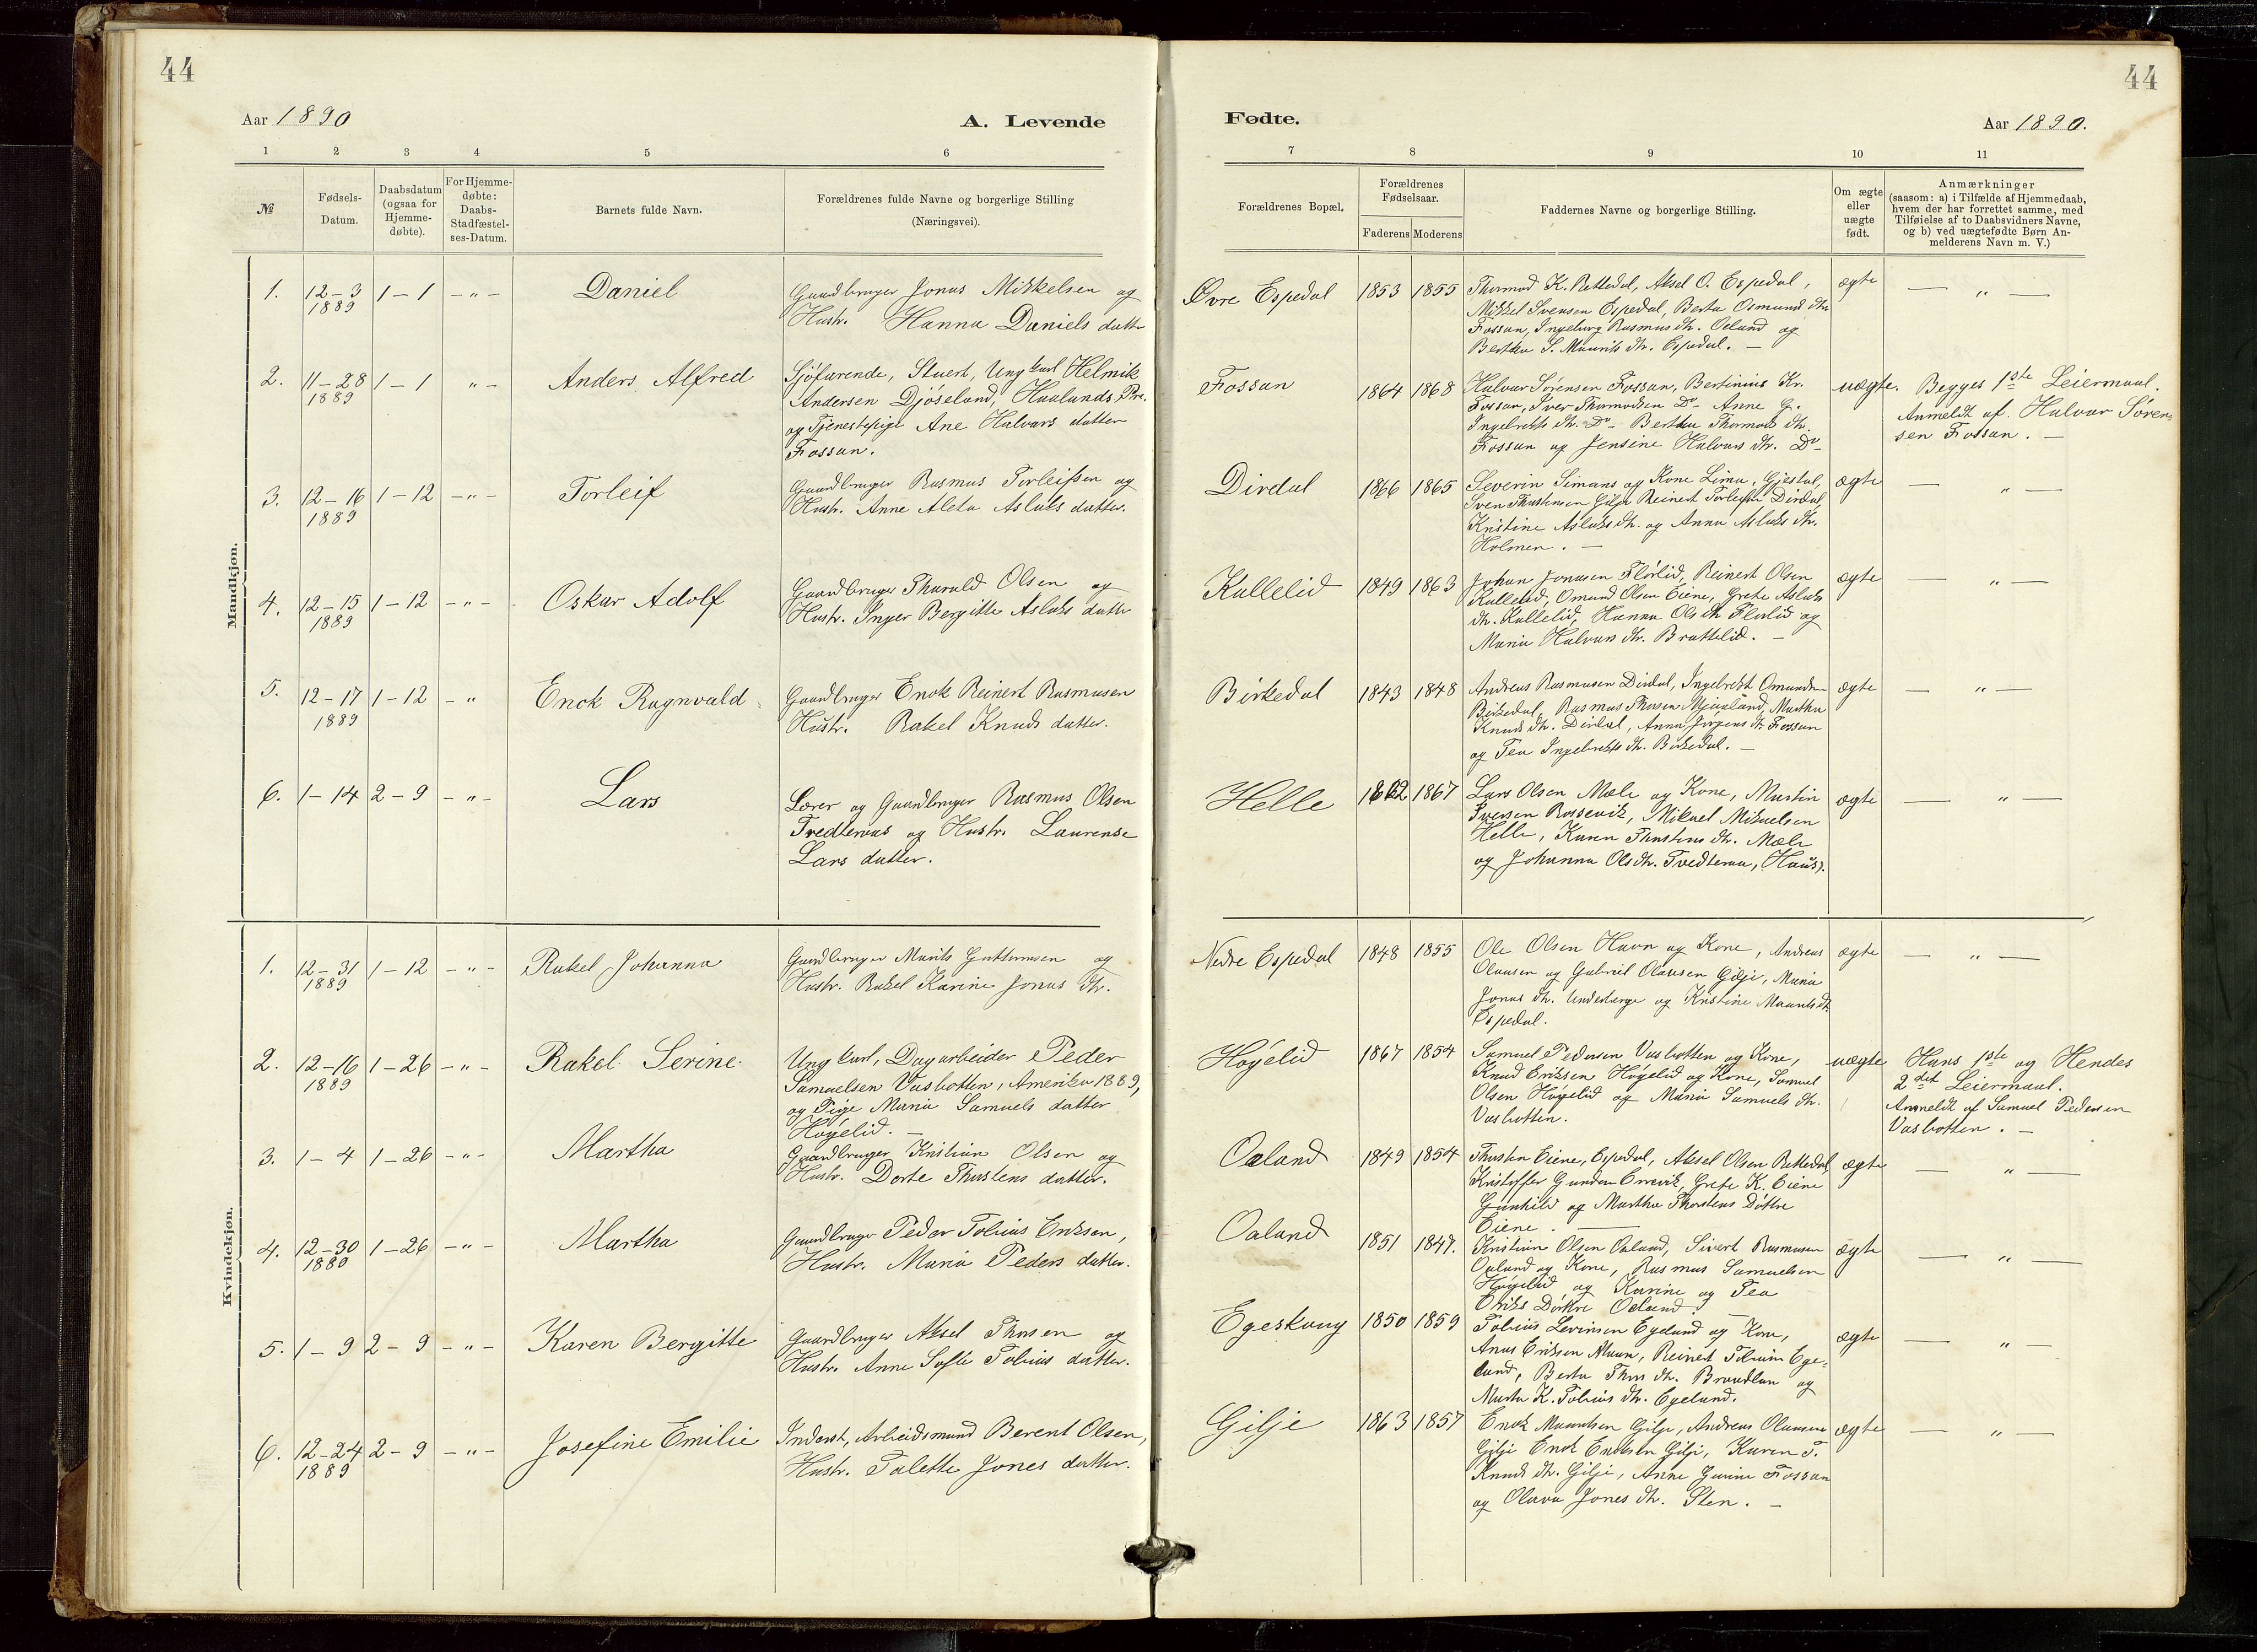 44
44
Aar 1890
A. Levende
Fødte.
Aar 1890.
1 2 3 4 5 6
7 8 9 10 11
№
Fødsels-
Datum.
Daabsdatum
(ogsaa for
Hjemme-
døbte).
For Hjemme-
døbte:
Daabs-
Stadfæstel-
ses-Datum.
Barnets fulde Navn.
Forældrenes fulde Navne og borgerlige Stilling
(Næringsvei).
Forældrenes Bopæl.
Forældrenes
Fødselsaar.
Faderens Moderens
Faddernes Navne og borgerlige Stilling.
Om ægte
eller
uægte
født.
Anmærkninger
(saasom: a) i Tilfælde af Hjemmedaab,
hvem der har forrettet samme, med
Tilføielse af to Daabsvidners Navne,
og b) ved uægtefødte Børn An-
melderens Navn m. V.)
Mandkjøn.
1. 12-3 1-1 -"- Daniel Gaardbruger Jonas Mikkelsen og
1889 Hustr. Hanna Daniels datter
Øvre Espedal 1853 1855 Thormod K. Rettedal, Aksel O. Espedal, ægte — " —
Mikkel Svensen Espedal, Berta Osmunds dtr.
Fossan, Ingeborg Rasmus dtr. Oeland og
Bertha S. Maurits dtr. Espedal. —
2. 11-28 1-1 "- Anders Alfred Sjöfarende, Stuert, Ungkarl Helmik
1889 Andersen Djöseland, Haalands Pre.
og Tjenestepige Ane Halvars datter
Fossan.
Fossan 1864 1868 Halvar Sörensen Fossan, Bertinius Kr. uægte. Begges 1ste Leiermaal.
Fossan, Iver Thormodsen Do- Anne G. Anmeldt af Halvar Sören-
Ingebrekts dtr. Do- Bertha Thormods dtr. sen Fossan. —
Fossan og Jensine Halvars dtr. Do-
3. 12-16 1-12 -"- Torleif Gaardbruger Rasmus Torleifsen og
1889 Hustr. Anne Aleta Aslaks datter.
Dirdal 1866 1865 Severin Simans og Kone Lima, Gjestal, ægte — " —
Sven Thorstensen Gilje Reinert Torleifsen Dirdal,
Kristine Aslaks dtr. og Anna Aslaks dtr.
Holmen. —
4. 12-15 1-12 -"- Oskar Adolf Gaardbruger Tharald Olsen og
1889 Hustr. Inger Bergitte Aslaks datter
Kallelid 1849 1863 Johan Jonasen Flörlid, Reinert Olsen ægte — " —
Kallelid, Omund Olsen Eiene, Grete Aslaks
dtr. Kallelid, Hanna Ols dtr. Flörlid og
Maria Halvars dtr. Brattelid. —
5. 12-17 1-12 -" Enok Ragnvald Gaardbruger Enok Reinert Rasmusen
1889 Hustr. Rakel Knuds datter.
Birkedal 1843 1848 Andreas Rasmusen Dirdal, Ingebrekt Omundsen ægte — " —
Birkedal, Rasmus Thorsen Mjaaland, Martha
Knuds dtr. Dirdal, Anna Jörgens dtr. Fossan
og Tea Ingebrekts dtr. Birkedal. —
6. 1-14 2-9 -"- Lars Lærer og Gaardbruger Rasmus Olsen
Tvedteraas og Hustr. Laurense
Lars datter.
Helle 1862 1867 Lars Olsen Mæle og Kone, Martin ægte — " —
Iversen Rossevik, Mikael Mikaelsen
Helle, Karen Thorstens dtr. Mæle
og Johanna Ols dtr. Tvedteraa, Haus).
Kvindekjøn.
1. 12-31 1-12 -"- Rakel Johanna Gaardbruger Maurits Guttormsen og
1889 Hustr. Rakel Karine Jonas dtr.
Nedre Espedal 1848 1855 Ole Olsen Havn og Kone, Andreas ægte — " —
Olausen og Gabriel Olausen Gilje, Maria
Jonas dtr. Underberge og Kristine Maurits dtr.
Espedal.
2. 12-16 1-26 -"- Rakel Serine. Ungkarl, Dagarbeider Peder
1889 Samuelsen Vasbotten, Amerika 1889,
og Pige Maria Samuels datter
Høyelid. —
Høyelid 1867 1854 Samuel Pedersen Vasbotten og Kone, uægte Hans 1ste og Hendes
Knud Eriksen Høyelid og Kone, Samuel 2det Leiermaal.
Olsen Høyelid og Maria Samuels dtr. Anmeldt af Samuel Pedersen
Vasbotten. Vasbotten. —
3. 1-4 1-26 -"- Martha Gaardbruger Kristian Olsen og
Hustr. Dorte Thorstens datter.
Oaland 1849 1854 Thorsten Eiene, Espedal, Aksel Olsen Rettedal, ægte — " —
Kristoffer Gundersen Ervevik, Grete K. Eiene
Gunhild og Martha Thorstens Döttre
Eiene. —
4. 12-30 1-26 -"- Martha Gaardbruger Peder Tobias Eriksen,
1889 Hustr. Maria Peders datter.
Oaland 1851 1847. Kristian Olsen Oaland, Sivert Rasmusen ægte — " —
Oaland og Kone, Rasmus Samuelsen
Høyelid og Karine og Tea
Eriks Döttre Oeland. —
5. 1-9 2-9 -"- Karen Bergitte Gaardbruger Aksel Thorsen og
Hustr. Anne Sofie Tobias datter.
Egeskaug 1850 1859 Tobias Levinsen Egeland og Kone, ægte — " —
Anas Eriksen Maan, Reinert Tobiasen Ege-
land, Berta Thors dtr. Brandlan og
Marta K. Tobias dtr. Egeland.
6. 12-24 2-9 -"- Josefine Emilie Inderst, Arbeidsmand Berent Olsen,
1889 Hustr. Talette Jones datter.
Gilje 1863 1857 Enok Mauritsen Gilje, Andreas Olausen ægte — " —
Gilje Enok Enoksen Gilje, Karen T.
Knuds dtr. Gilje, Anne Gurine Fossan
og Olava Jones dtr. Sten. —